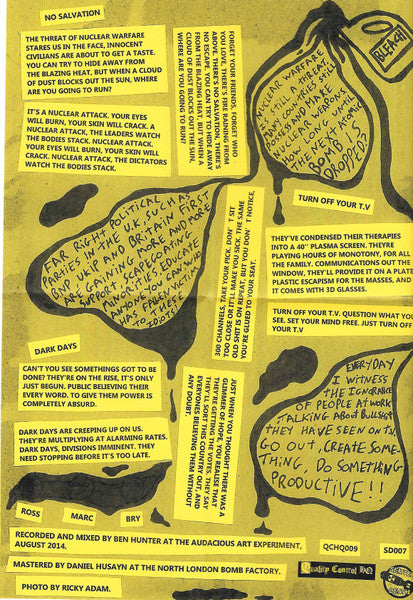 NO SALVATION
THE THREAT OF NUCLEAR WARFARE
STARES US IN THE FACE, INNOCENT
CIVILIANS ARE ABOUT TO GET A TASTE.
YOU CAN TRY TO HIDE AWAY FROM
THE BLAZING HEAT, BUT WHEN A CLOUD
OF DUST BLOCKS OUT THE SUN, WHERE
ARE YOU GOING TO RUN?
IT'S A NUCLEAR ATTACK. YOUR EYES
WILL BURN, YOUR SKIN WILL CRACK. A
NUCLEAR ATTACK, THE LEADERS WATCH
THE BODIES STACK. NUCLEAR ATTACK.
YOUR EYES WILL BURN, YOUR SKIN WILL
CRACK. NUCLEAR ATTACK, THE DICTATORS
WATCH THE BODIES STACK.
FORGET YOUR FRIENDS. FORGET WHO
YOU LOVE, THERE'S FIRE RAINING FROM
ABOVE. THERE'S NO SALVATION. THERE'S
NO ESCAPE. YOU CAN TRY TO HIDE AWAY
FROM THE BLAZING HEAT, BUT WHEN A
CLOUD OF DUST BLOCKS OUT THE SUN,
WHERE ARE YOU GOING TO RUN?
BLEACH
NUCLEAR WARFARE
IS STILL A THREAT.
MANY COUNTRIES STILL
POSSESS AND MAKE
NUCLEAR WEAPONS.
HOW LONG UNTIL
THE NEXT ATOMIC
BOMB IS
DROPPED?
FAR RIGHT POLITICAL
PARTIES IN THE U.K, SUCH AS
BNP UKIP AND BRITAIN FIRST
ARE GAINING MORE AND MORE
SUPPORT, SCAPEGOATING
MINORITIES. EDUCATE
ANYONE YOU KNOW WHO
HAS FALLEN VICTIM
TO THESE
IDIOTS!
TURN OFF YOUR T.V
THEY'VE CONDENSED THEIR THERAPIES
INTO A 40" PLASMA SCREEN. THEYRE
PLAYING HOURS OF MONOTONY, FOR ALL
THE FAMILY. COMMUNICATIONS OUT THE
WINDOW, THEY'LL PROVIDE IT ON A PLATE
PLASTIC ESCAPISM FOR THE MASSES, AND
IT COMES WITH 3D GLASSES.
300 CHANNELS, TAKE YOUR PICK. DON'T SIT
TOO CLOSE OR IT'LL MAKE YOU SICK. THE SAME
OLD SHIT IS ON REPEAT, BUT YOU DON'T NOTICE,
YOU'RE GLUED TO YOUR SEAT.
TURN OFF YOUR T.V. QUESTION WHAT YOU
SEE. SET YOUR MIND FREE. JUST TURN OFF
YOUR T.V
DARK DAYS
CAN'T YOU SEE SOMETHINGS GOT TO BE
DONE? THEY'RE ON THE RISE, IT'S ONLY
JUST BEGUN. PUBLIC BELIEVING THEIR
EVERY WORD. TO GIVE THEM POWER IS
COMPLETELY ABSURD.
DARK DAYS ARE CREEPING UP ON US.
THEY'RE MULTIPLYING AT ALARMING RATES.
DARK DAYS, DIVISIONS IMMINENT. THEY
NEED STOPPING BEFORE IT'S TOO LATE.
JUST WHEN YOU THOUGHT THERE WAS A
GLIMMER OF HOPE, YOU REALISE THAT
THEY'RE GETTING THE VOTES. THEY SAY
THEY'LL SORT THIS COUNTRY OUT, AND
EVERYONES BELIEVING THEM WITHOUT
ANY DOUBT.
EVERYDAY
I WITNESS
THE IGNORANCE
OF PEOPLE AT WORK
TALKING ABOUT BULLSHIT
THEY HAVE SEEN ON T.V.
GO OUT, CREATE SOME-
THING, DO SOMETHING
PRODUCTIVE!!
ROSS MARC BRY
RECORDED AND MIXED BY BEN HUNTER AT THE AUDACIOUS ART EXPERIMENT,
AUGUST 2014.
QCHQ009 SD007
MASTERED BY DANIEL HUSAYN AT THE NORTH LONDON BOMB FACTORY.
Quality Control HQ
PHOTO BY RICKY ADAM.